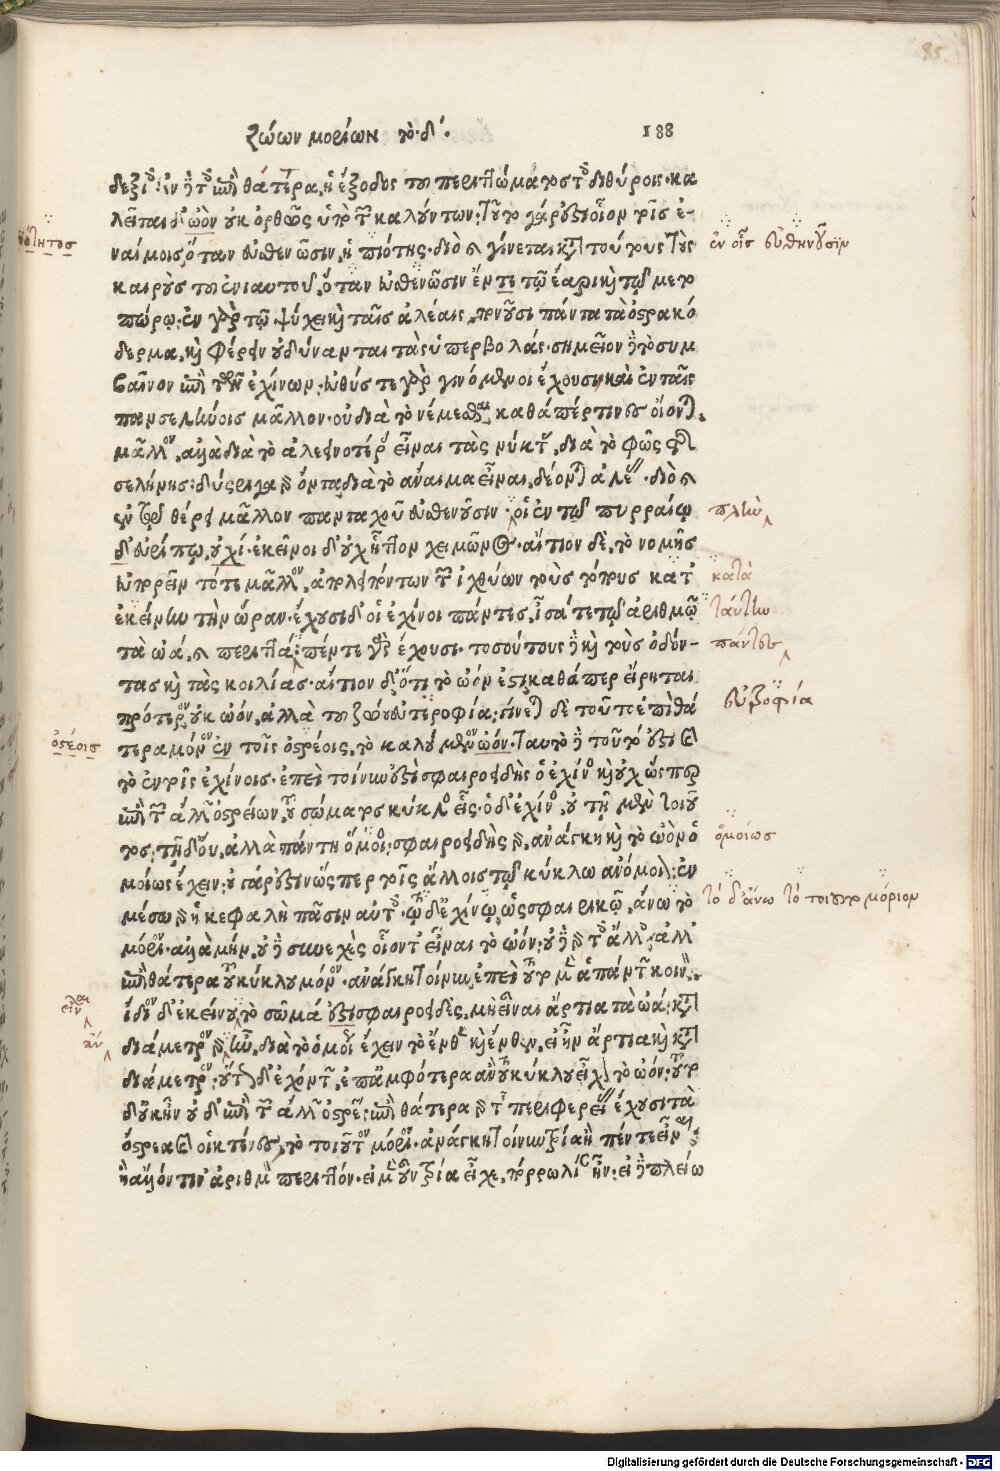 ζώων μορίων τὸ δ΄. 188
85
δεξιοῦ: ἐν δὲ τοῦ ἐπὶ θάτερα, ἡ ἔξοδος τοῦ περιττώματος τοῖς διθύροις. κα
λεῖται δ' ὠὸν οὐκ ὀρθῶς ὑπὸ τῶν καλούντων: τοῦτο γάρ ἐστιν οἷον τοῖς ἐ-
ναίμοις ὅταν εὐθενῶσιν, ἡ πιότης. διὸ καὶ γίνεται κατὰ τούτους τοὺς
καιροὺς τοῦ ἐνιαυτοῦ, ὅταν εὐθενῶσιν ἔν τε τῷ ἔαρι καὶ τῷ μετο
πώρῳ: ἐν γὰρ τῷ ψύχει καὶ ταῖς ἀλέαις, πονοῦσι πάντα τὰ ὀστρακό
δερμα, καὶ φέρειν οὐ δύνανται τὰς ὑπερβολάς. σημεῖον δὲ τὸ συμ
βαῖνον ἐπὶ τῶν ἐχίνων: εὐθύς τε γὰρ γινόμενοι ἔχουσι, καὶ ἐν ταῖς
πανσελήνοις μᾶλλον. οὐ διὰ τὸ νέμεσθαι καθάπέρ τινες οἴονται
μᾶλλον, ἀλλὰ διὰ τὸ ἀλεεινοτέρας εἶναι τὰς νύκτας, διὰ τὸ φῶς τῆς
σελήνης: δύσριγα γὰρ ὄντα διὰ τὸ ἄναιμα εἶναι, δέονται ἀλέας. διὸ καὶ
ἐν τῷ θέρει μᾶλλον πανταχοῦ εὐθενοῦσιν. οἱ ἐν τῷ πυρραίῳ
δ' εὐρίπῳ, οὐχί. ἐκεῖνοι δ' οὐχ ἧττον χειμῶνος. αἴτιον δὲ, τὸ νομῆς
εὐπορεῖν τότε μᾶλλον, ἀπολειπόντων τῶν ἰχθύων τοὺς τόπους κατ'
ἐκείνην τὴν ὥραν. ἔχουσι δ' οἱ ἐχίνοι πάντες, ἴσα τε τῷ ἀριθμῷ
τὰ ὠά, καὶ περιττά: πέντε γὰρ ἔχουσι. τοσούτους δὲ καὶ τοὺς ὀδόν-
τας καὶ τὰς κοιλίας. αἴτιον δ' ὅτι τὸ ὠόν ἐστι καθάπερ εἴρηται
πρότερον οὐκ ὠόν, ἀλλὰ τοῦ ζῴου εὐτροφία: γίνεται δὲ τοῦτο ἐπὶ θά
τερα μόνον ἐν τοῖς ὀστρέοις, τὸ καλούμενον ὠόν. ταυτὸ δὲ τοῦτό ἐστι καὶ
τὸ ἐν τοῖς ἐχίνοις. ἐπεὶ τοίνυν ἐστὶ σφαιροειδὴς ὁ ἐχῖνος καὶ οὐχ ὥσπερ
ἐπὶ τῶν ἄλλων ὀστρέων, τοῦ σώματος κύκλος εἷς. ὁ δ' ἐχῖνος, οὐ τῇ μὲν τοιοῦ
τος, τῇ δ' οὔ, ἀλλὰ πάντη ὅμοιος: σφαιροειδὴς γὰρ, ἀνάγκη καὶ τὸ ὠὸν ὁ
μοίως ἔχειν: οὐ γάρ ἐστιν ὥσπερ τοῖς ἄλλοις τῷ κύκλῳ ἀνόμοιον: ἐν
μέσῳ γὰρ ἡ κεφαλὴ πᾶσιν αὐτοῖς. τῷ δὲ ἐχίνῳ, ὡς σφαιρικῷ, ἄνω τὸ
μόριον. ἀλλὰ μήν, οὐδὲ συνεχὲς οἷόν τ' εἶναι τὸ ὠόν: οὐδὲ γὰρ τοῖς ἄλλοις: ἀλλ'
ἐπὶ θάτερα τοῦ κύκλου μόνον. ἀνάγκη τοίνυν, ἐπεὶ τοῦτο μὲν ἁπάντων κοινὸν:
ἴδιον δ' ἐκείνου, τὸ σῶμα ἐστι σφαιροειδές, μὴ εἶναι ἄρτια τὰ ὠά: κατὰ
διάμετρον γὰρ ἦν, διὰ τὸ ὁμοίως ἔχειν τὸ ἔνθεν καὶ ἔνθεν, εἰ ἦν ἄρτια καὶ κατὰ
διάμετρον: οὕτως δ' ἐχόντων, ἐπ' ἀμφότερα ἂν τοῦ κύκλου εἶχον τὸ ὠόν: τοῦτο
δ' οὐκ ἦν οὐδ' ἐπὶ τῶν ἄλλων ὀστρέων: ἐπὶ θάτερα γὰρ τῆς περιφερείας ἔχουσι τὰ
ὄστρεα καὶ οἱ κτένες, τὸ τοιοῦτον μόριον. ἀνάγκη τοίνυν τρία ἢ πέντε εἶναι
ἢ ἄλλόν τιν' ἀριθμὸν περιττόν. εἰ μὲν οὖν τρία εἶχε, πόρρω λίαν ἦν: εἰ δὲ πλείω
ἐν οἷς εὐθηνοῦσιν
πλὴν
κατὰ
ταύτην
πάντες
εὐτροφία
ὀστέοις
ὁμοίως
τὸ δ' ἄνω τὸ τοιοῦτο μόριον
εἶναι
ἂν
Digitalisierung gefördert durch die Deutsche Forschungsgemeinschaft - DFG